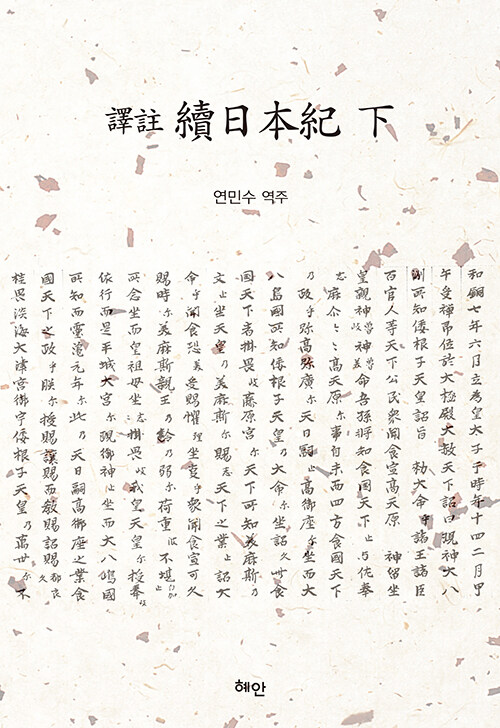 譯註 續日本紀 下
연민수 역주
和銅七年六月立爲皇太子于時年十四二月甲
午受禪卽位於大極殿大赦天下詔曰現神大八
洲所知倭根子天皇詔旨 勅大命乎諸王諸臣
百官人等天下公民衆聞食宣高天原 神留坐
皇親神魯岐神魯美命吾孫將知食國天下止与佐奉
志麻介々高天原尓事自来而四方食國天下
乃政乎弥高弥廣尓天日嗣止高御座尓坐而大
八嶋國所知倭根子天皇乃大命尓坐詔久此食
國天下者掛畏岐藤原宮尓天下所知美麻斯乃
父止坐天皇乃美麻斯尓賜志天下之業止詔大
命乎聞食恐美受賜懼理坐事乎衆聞食宣可久
賜時尓美麻斯親王乃齡乃弱尓荷重波不堪
所念坐而皇祖母坐志掛畏岐我皇天皇尓授奉岐
依行而是平城大宮尓現御神止坐而大八嶋國
所知而靈龜元年尓此乃天日嗣高御座之業食
國天下之政乎朕尓授賜讓賜而敎賜詔賜
挂畏淡海大津宮御宇倭根子天皇乃萬世尓不
혜안